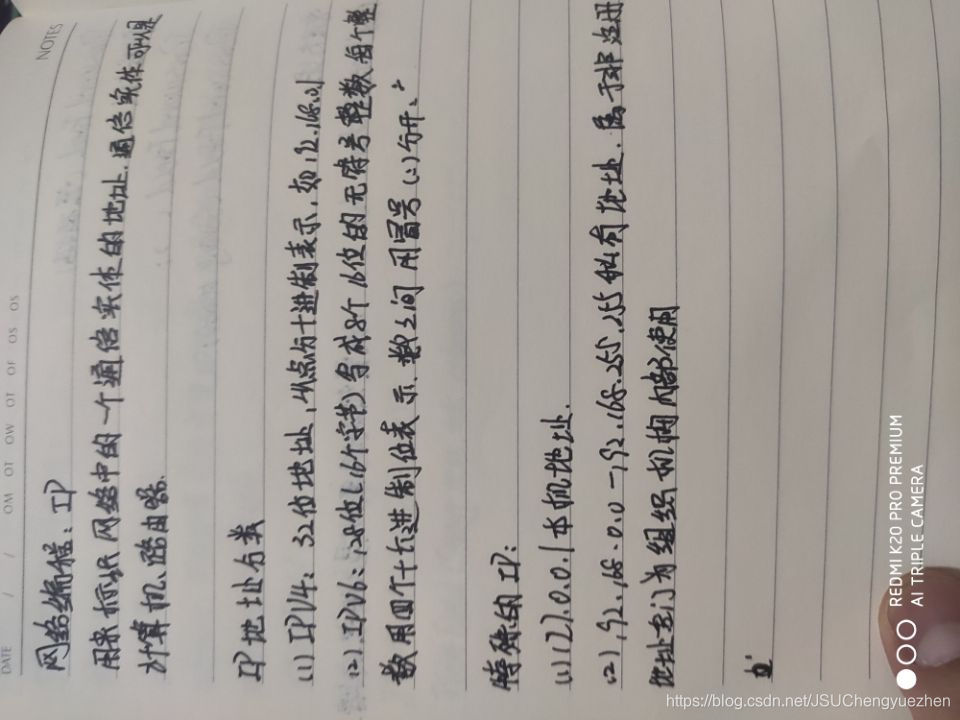 NOTES
DATE / / OM OT OW OT OF OS OS
网络编程：IP
用来标识网络中的一个通信实体的地址.通信实体可以是
计算机、路由器.
IP地址分类
(1) IPV4：32位地址,以点分十进制表示,如192.168.0.1
(2).IPV6：128位(16个字节)写成8个16位的无符号整数每个整
数用四个十六进制位表示.数之间用冒号(:)分开.
特殊的IP：
(1)127.0.0.1本机地址.
(2)192.168.0.0—192.168.255.255私有地址.属于非注册
地址专门为组织机构内部使用
REDMI K20 PRO PREMIUM
AI TRIPLE CAMERA
https://blog.csdn.net/JSUChengyuezhen